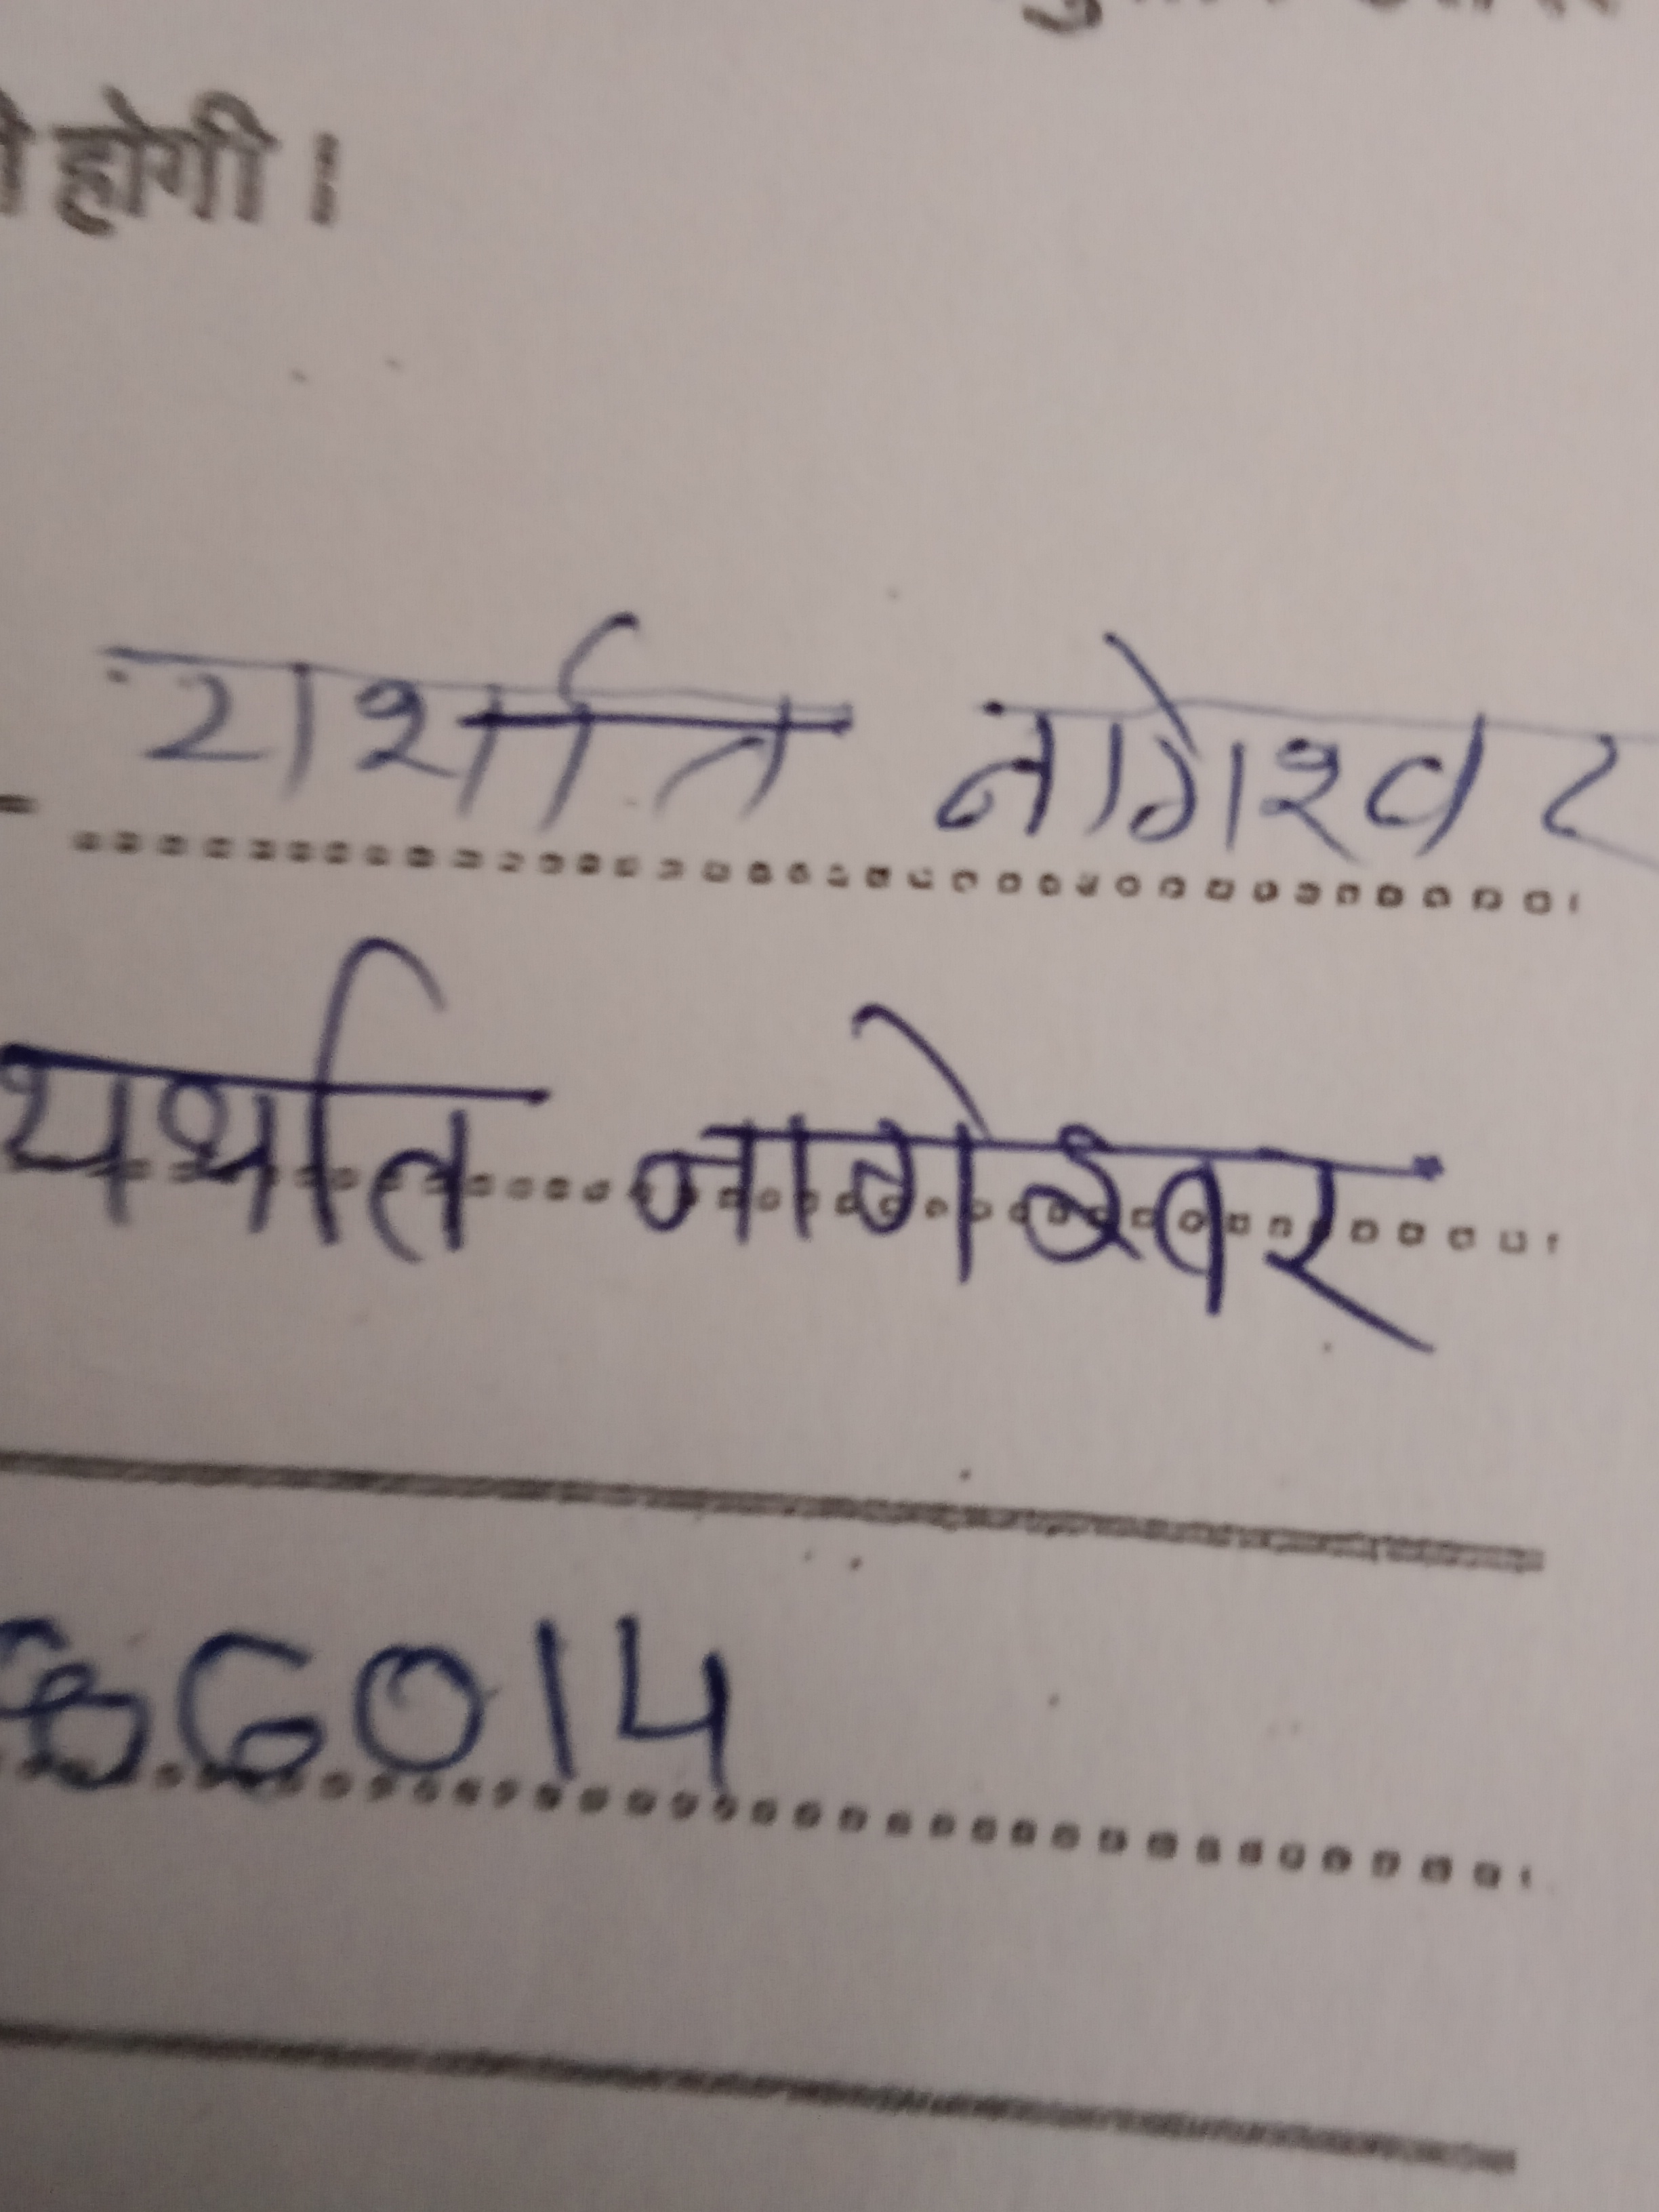 होगी।
यर्थात नागेश्वर
यर्थात नागेश्वर
6014